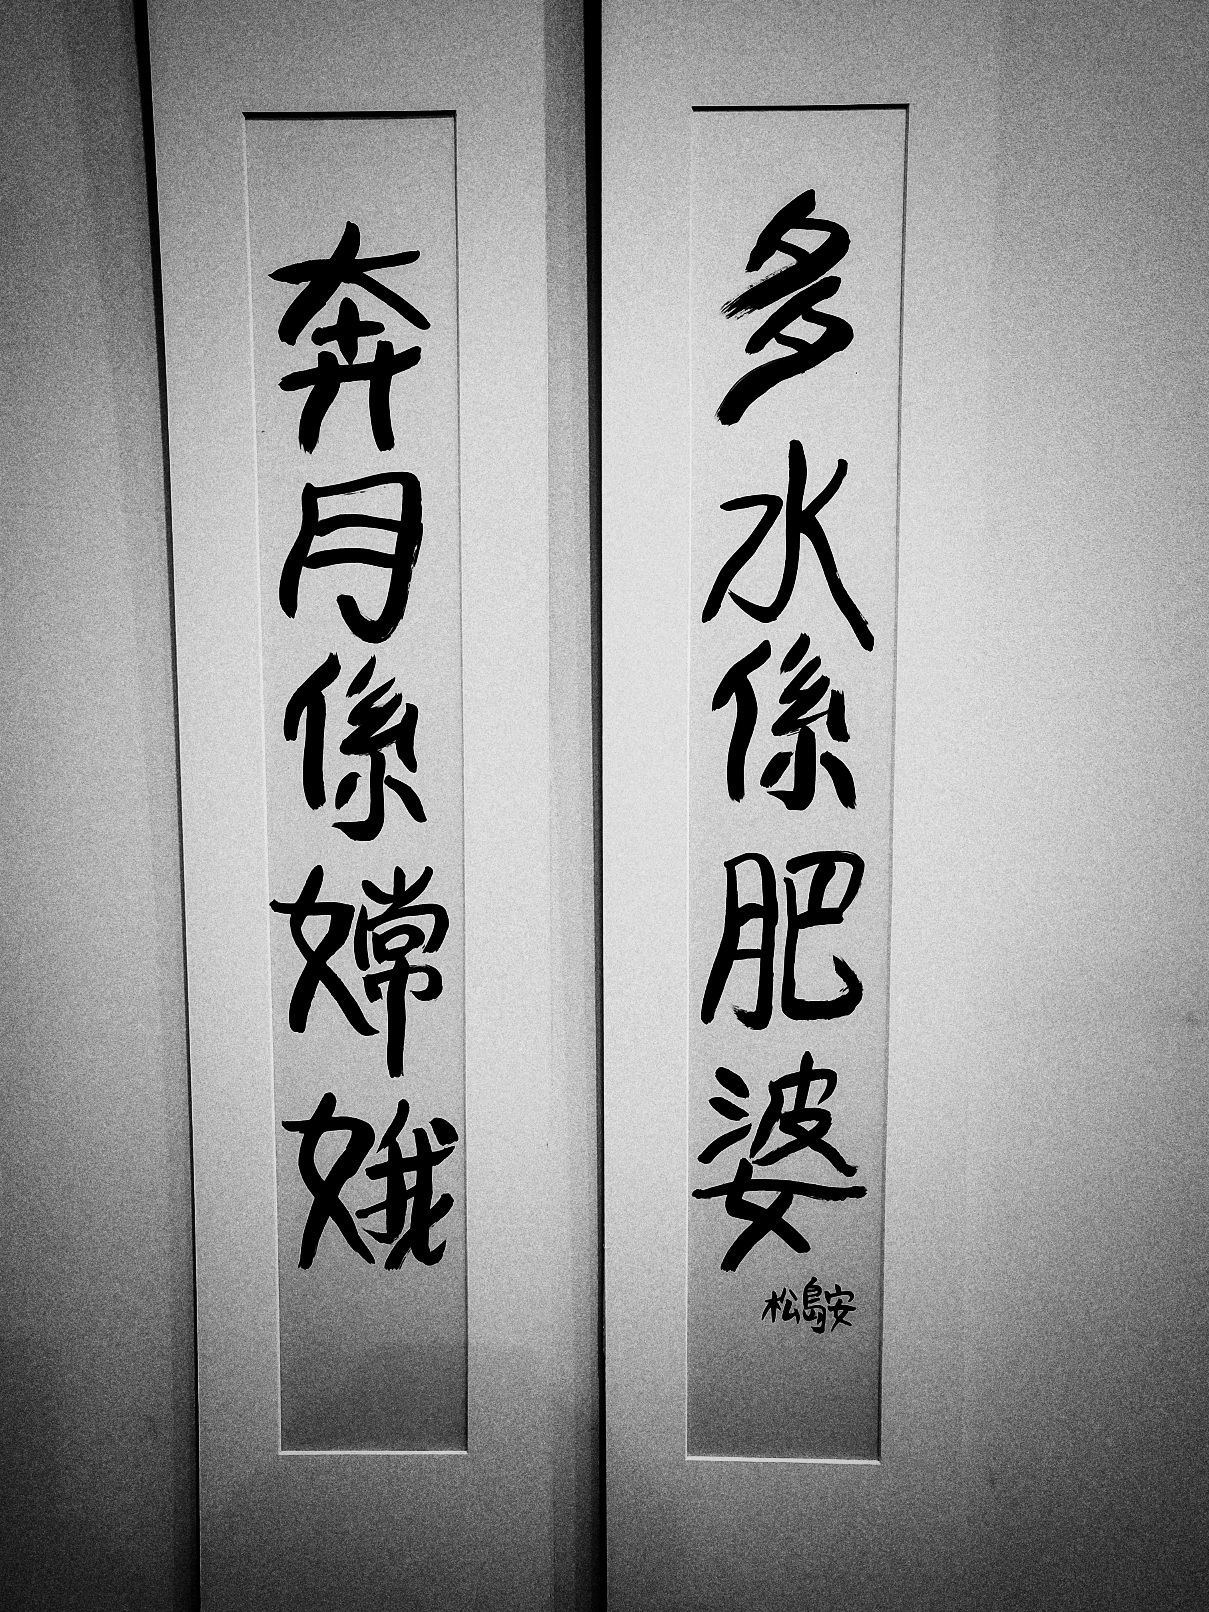 多水係肥婆
松島安
奔月係嫦娥